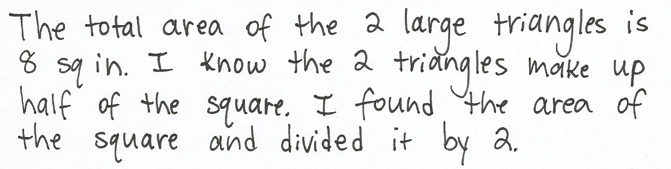 The total area of the 2 large triangles is
8 sq in. I know the 2 triangles make up
half of the square. I found the area of
the square and divided it by 2.